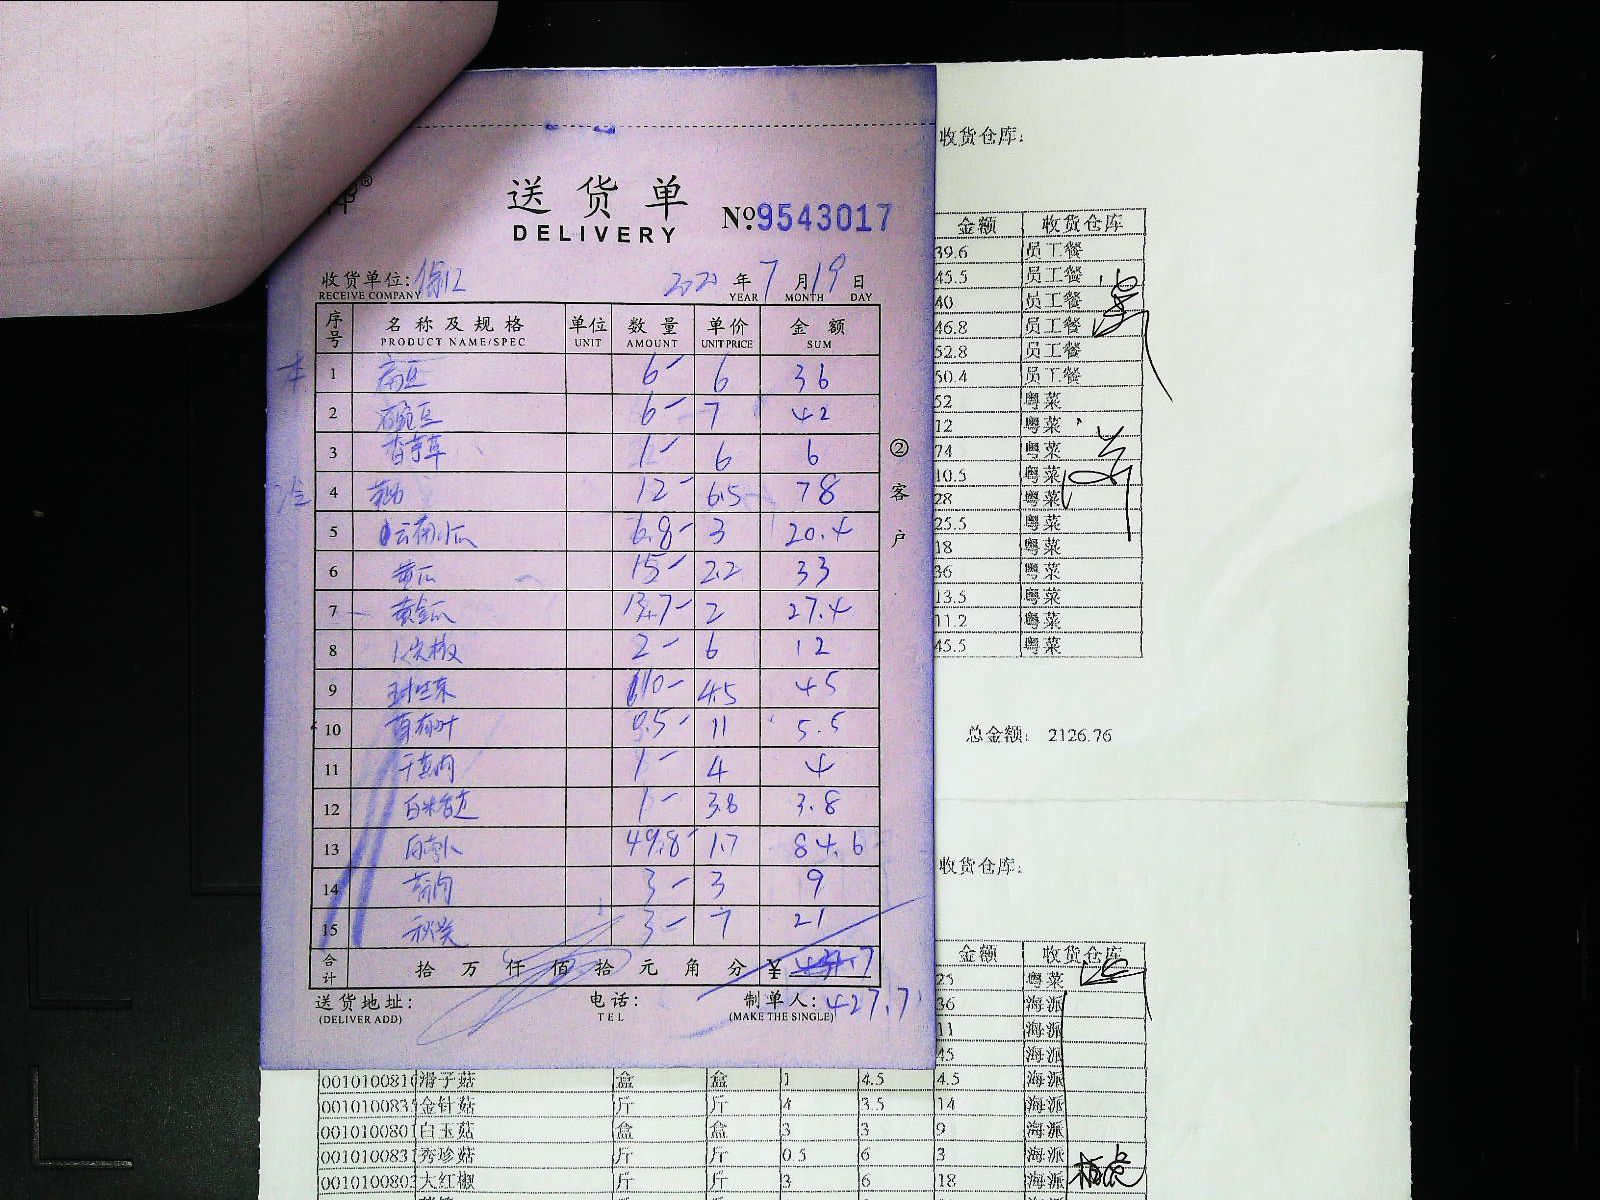 送货单
DELIVERY
№9543017
收货单位:
RECEIVE COMPANY
年 7 月 19 日
YEAR MONTH DAY
序号 名称及规格 单位 数量 单价 金额
PRODUCT NAME/SPEC UNIT AMOUNT UNIT PRICE SUM
1 扁豆 6 6 36
2 6 7 42
3 香茅草 1 6 6
4 12 6.5 78
5 云南小瓜 6.8 3 20.4
6 黄瓜 15 2.2 33
7 黄金瓜 13.7 2 27.4
8 2 6 12
9 10 4.5 45
10 0.5 11 5.5
11 1 4 4
12 1 3.8 3.8
13 49.8 1.7 84.6
14 3 3 9
15 秋葵 3 7 21
合计 拾 万 仟 佰 拾 元 角 分 ¥
427.7
送货地址:
(DELIVER ADD)
电话:
TEL
制单人:
(MAKE THE SINGLE)
② 客户
收货仓库:
金额 收货仓库
39.6 员工餐
45.5 员工餐
40 员工餐
46.8 员工餐
52.8 员工餐
50.4 员工餐
52 粤菜
12 粤菜
74 粤菜
10.5 粤菜
28 粤菜
25.5 粤菜
18 粤菜
36 粤菜
13.5 粤菜
11.2 粤菜
45.5 粤菜
总金额: 2126.76
收货仓库:
金额 收货仓库
25 粤菜
36 海派
11 海派
45 海派
滑子菇 盒 盒 1 4.5 4.5 海派
金针菇 斤 斤 4 3.5 14 海派
白玉菇 盒 盒 3 3 9 海派
秀珍菇 斤 斤 0.5 6 3 海派
大红椒 斤 斤 3 6 18 海派